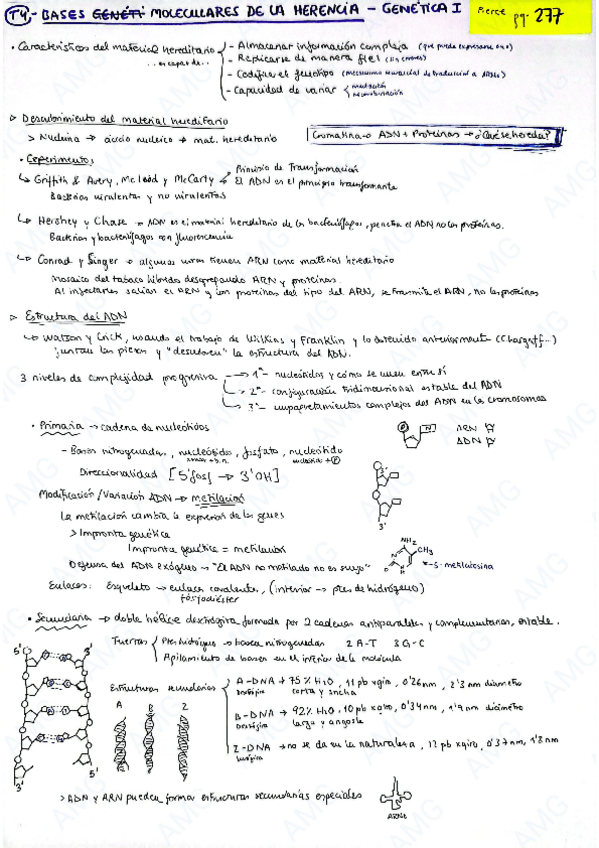 T4.- BASES GENÉTI MOLECULARES DE LA HERENCIA - GENÉTICA I
Pierce pg. 277
· Características del material hereditario
... es capaz de...
- Almacenar información compleja (que pueda expresarse o no)
- Replicarse de manera fiel (sin errores)
- Codificar el fenotipo
- Capacidad de variar mutación
recombinación
▷ Descubrimiento del material hereditario
> Nucleína → ácido nucleico → mat. hereditario
Cromatina → ADN + Proteínas → ¿Qué se hereda?
· Experimentos
↳ Griffith & Avery, McLeod y McCarty
Principio de Transformación
El ADN es el principio transformante
Bacterias virulentas y no virulentas
↳ Hershey y Chase → ADN es el material hereditario de los bacteriófagos, penetra el ADN no las proteínas.
Bacterias y bacteriófagos con fluorescencia
↳ Conrad y Singer → algunos virus tienen ARN como material hereditario
Mosaico del tabaco híbrido desagregando ARN y proteínas
Al inyectarles salían el ARN y con proteínas del tipo del ARN, se transmite el ARN, no las proteínas
▷ Estructura del ADN
↳ Watson y Crick, usando el trabajo de Wilkins y Franklin y lo obtenido anteriormente (Chargaff...)
juntan las piezas y "descubren" la estructura del ADN.
3 niveles de complejidad progresiva
→ 1ª- nucleótidos y cómo se unen entre sí
→ 2ª- configuración tridimensional estable del ADN
→ 3ª- empaquetamientos complejos del ADN en los cromosomas
· Primaria → cadena de nucleótidos
P N ARN
ADN
- Bases nitrogenadas, nucleósido, fosfato, nucleótido
nucleósido + P
Direccionalidad [5'fosf → 3'OH]
5'
3'
Modificación/Variación ADN → metilación
La metilación cambia la expresión de los genes
> Impronta genética
Impronta genética = metilación
NH2
CH3
5-metilcitosina
Defensa del ADN exógeno → "El ADN no metilado no es suyo"
Enlaces: Esqueleto → enlaces covalentes, (interior → ptes de hidrógeno)
fosfodiéster
· Secundaria → doble hélice dextrógira formada por 2 cadenas antiparalelas y complementarias, estable.
Fuerzas
Ptes hidrógeno → bases nitrogenadas 2 A-T 3 G-C
Apilamiento de bases en el interior de la molécula
5' 3'
Estructuras secundarias
A B Z
A-DNA → 75% H2O, 11 pb x giro, 0'26 nm, 2'3 nm diámetro
dextrógira corta y ancha
B-DNA → 92% H2O, 10 pb x giro, 0'34 nm, 1'9 nm diámetro
dextrógira larga y angosta
Z-DNA → no se da en la naturaleza, 12 pb x giro, 0'37 nm, 1'8 nm
levógira
3' 5'
> ADN y ARN pueden formar estructuras secundarias especiales
ARNt
AMG